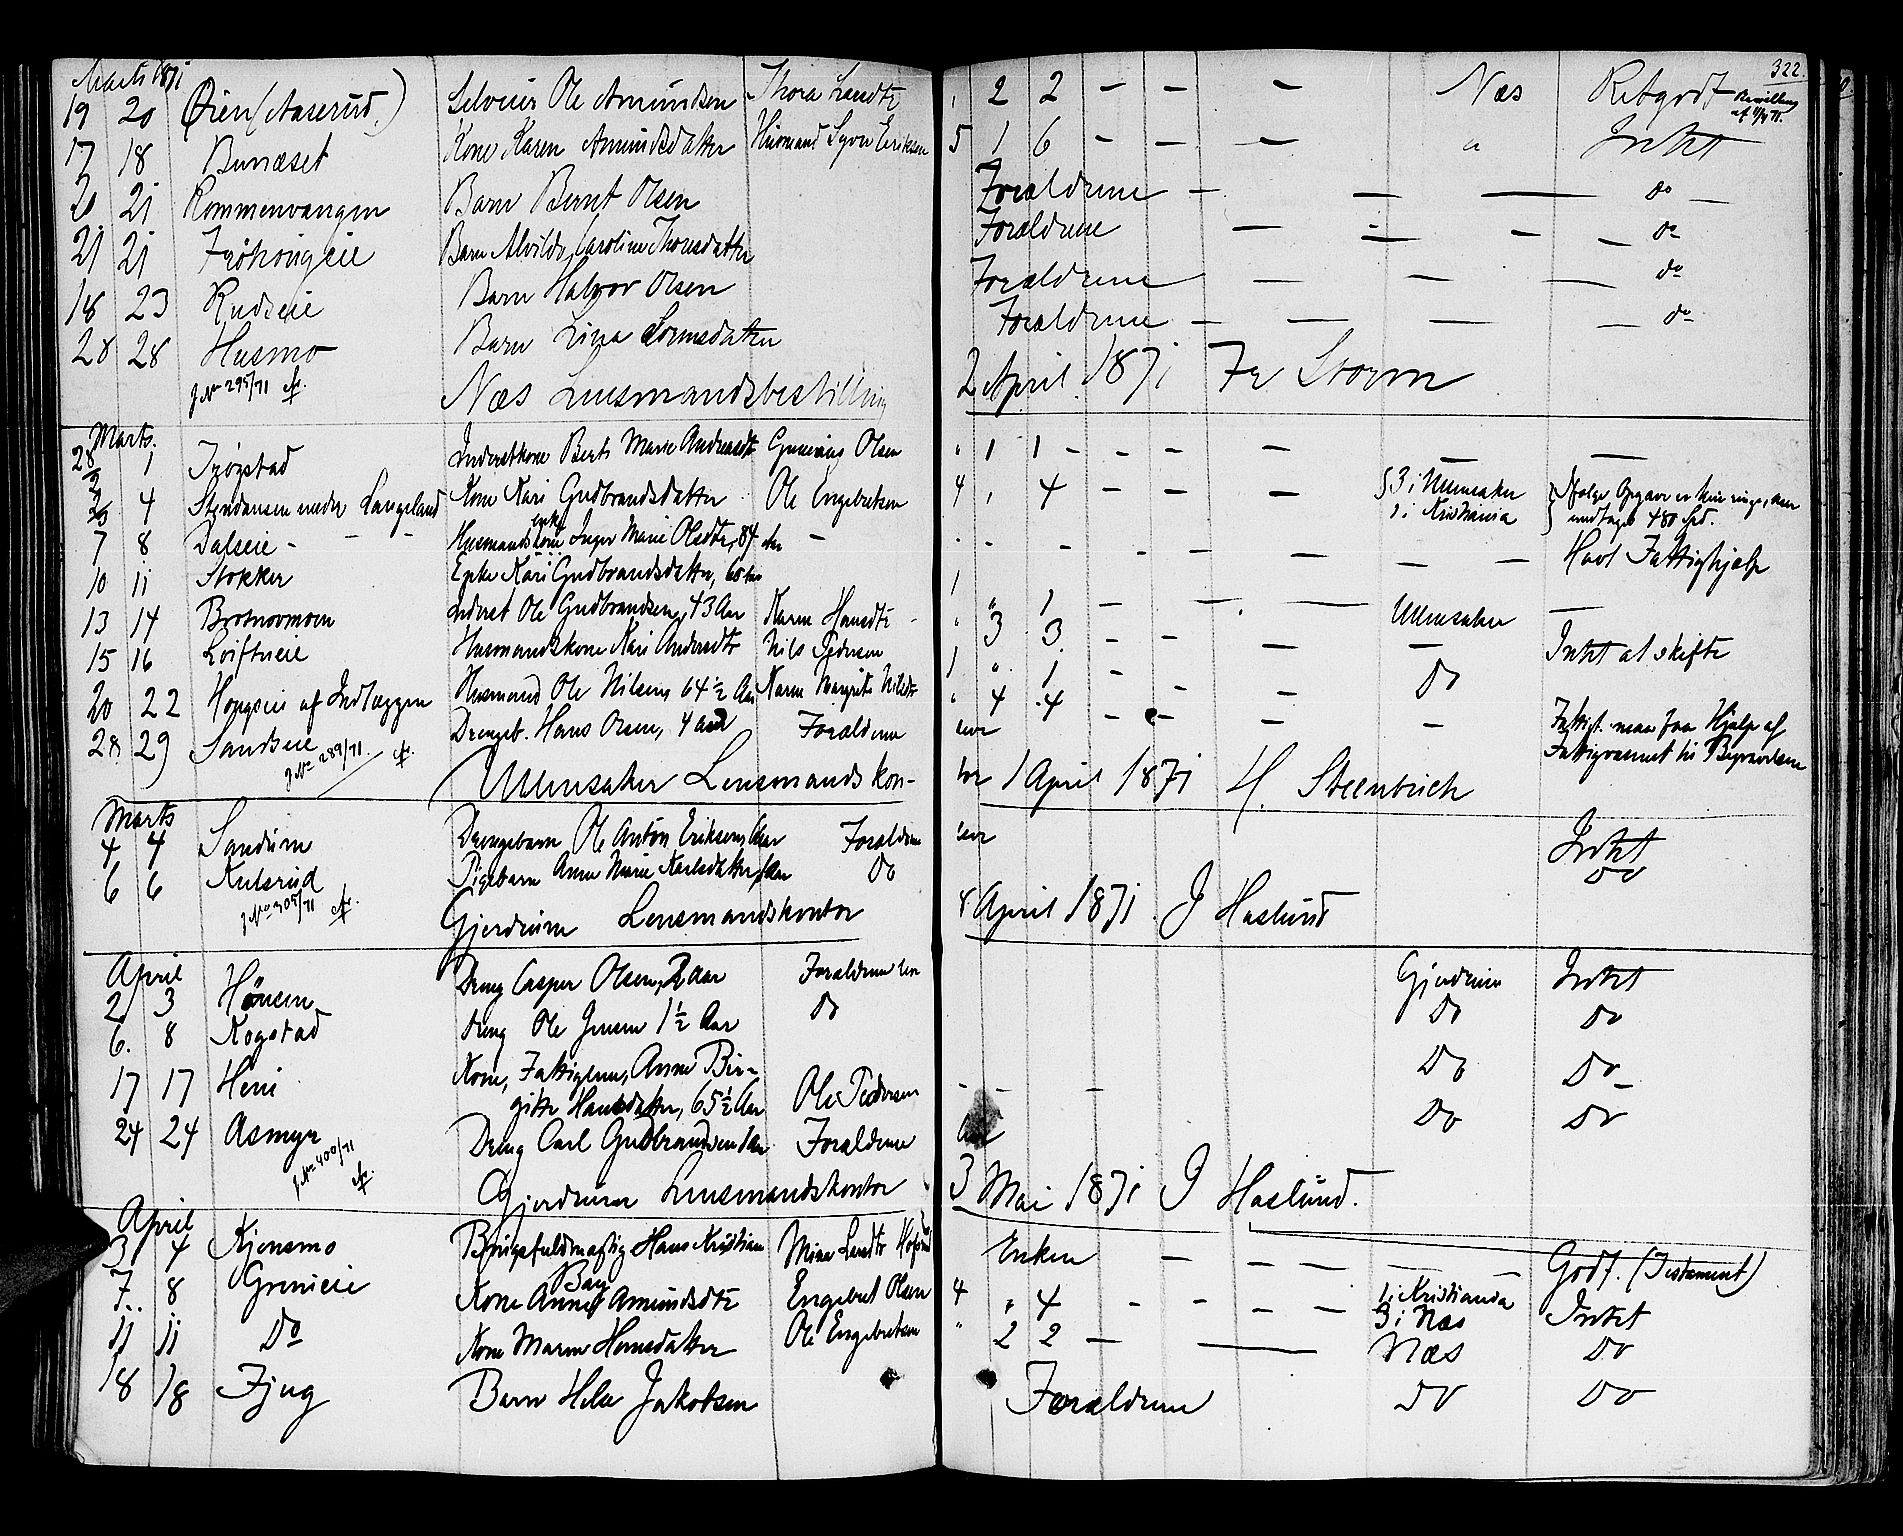 322.
Marts 1871
19 20 Øien (Aaserud.) Selveier Ole Amundsen Thora Larsdtr 2 2 — — — Næs Ret godt Bevilling
17 18 Bunæset Kone Karen Amundsdatter Husmand Syver Eriksen 5 1 6 — — — " Intet
20 21 Rommenvangen Barn Bernt Olsen Forældrene — — — do —
21 21 Frøhougeie Barn Alvilde Caroline Thorsdatter Forældrene — — — — do
18 23 Rudseie Barn Halvor Olsen Forældrene — — — do
28 28 Husmo Barn Lina Forældrene — — — — do
J No 295/71
Næs Lensmandsbestilling 2 April 1871 Fr Storm
Marts.
28 1 Trøgstad Inderstkone Berte Marie Andreasdtr Gunerius Olsen " 1 1 — — — — — —
4 under Langeland Kone Kari Gudbrandsdatter Ole Engebretsen 4 " 4 — — — 3 i Ullensaker
1 i Kristiania undtages 480 Spd.
7 8 Dalseie — — — Husmandsenke Inger Marie Olsdtr, 84 Aar — Havt Fattighjelp
10 11 Stokker Enke Kari Gudbrandsdatter, 68 Aar 1 " 1 — — — Ullensaker —
13 14 Inderst Ole Gudbrandsen, 43 Aar Karen Hansdtr " 3 3 — — — — Intet at skifte
15 16 Løiftneie Husmandskone Kari Andersdtr Nils Pedersen 1 " 1 — — — Do
20 22 Hougseie af Indlæggen Husmand Ole Nilsen 64 ½ Aar Karen Margrete Nilsdtr " 4 4 — — — — Fattigt. maa faa Hjelp af
28 29 Sandseie Drengeb. Hans Olsen, 4 aar Forældrene lever Fattigvæsenet til Begravelsen
J No 289/71
Ullensaker Lensmandskon-
tor 1 April 1871 H. Steenbuch
Marts
4 4 Sandum Drengebarn Ole Anton Eriksen, Forældrene lever Intet
6 6 Kulsrud Pigebarn Anne Marie Karlsdatter, Do Do
J No 305/71
Gjerdrum Lensmandskontor 8 April 1871. J Haslund
April
2 3 Hønsen Dreng Casper Olsen, 2 aar Forældrene lever Gjerdrum Intet
6. 8 Kogstad Dreng Ole Jensen 1 ½ Aar Do Do Do
17 17 Heni Kone, Fattiglem, Anne Bir- Do Do —
gitte Hansdatter, 65 ½ Aar Ole Pedersen — — —
24 24 Asmyr Dreng Carl Gudbrandsen 1 Aar Forældrene Do Do
J No 400/71
Gjerdrum Lensmandskontor 3 Mai 1871 J Haslund.
April
3 4 Kjensmo Brugsfuldmægtig Hans Kristian Enken — — — — — Godt. (Testament)
7. 8 Grinieie Kone Anne Amundsdtr Engebret Olsen 4 " 4 — — — — 1 i Kristiania
3 i Næs Intet
11 11 Do Kone Maren Hansdatter Ole Engebretsen " 2 2 — — Næs Do
18 18 Fjug Barn Jakobsen Forældrene Do Do